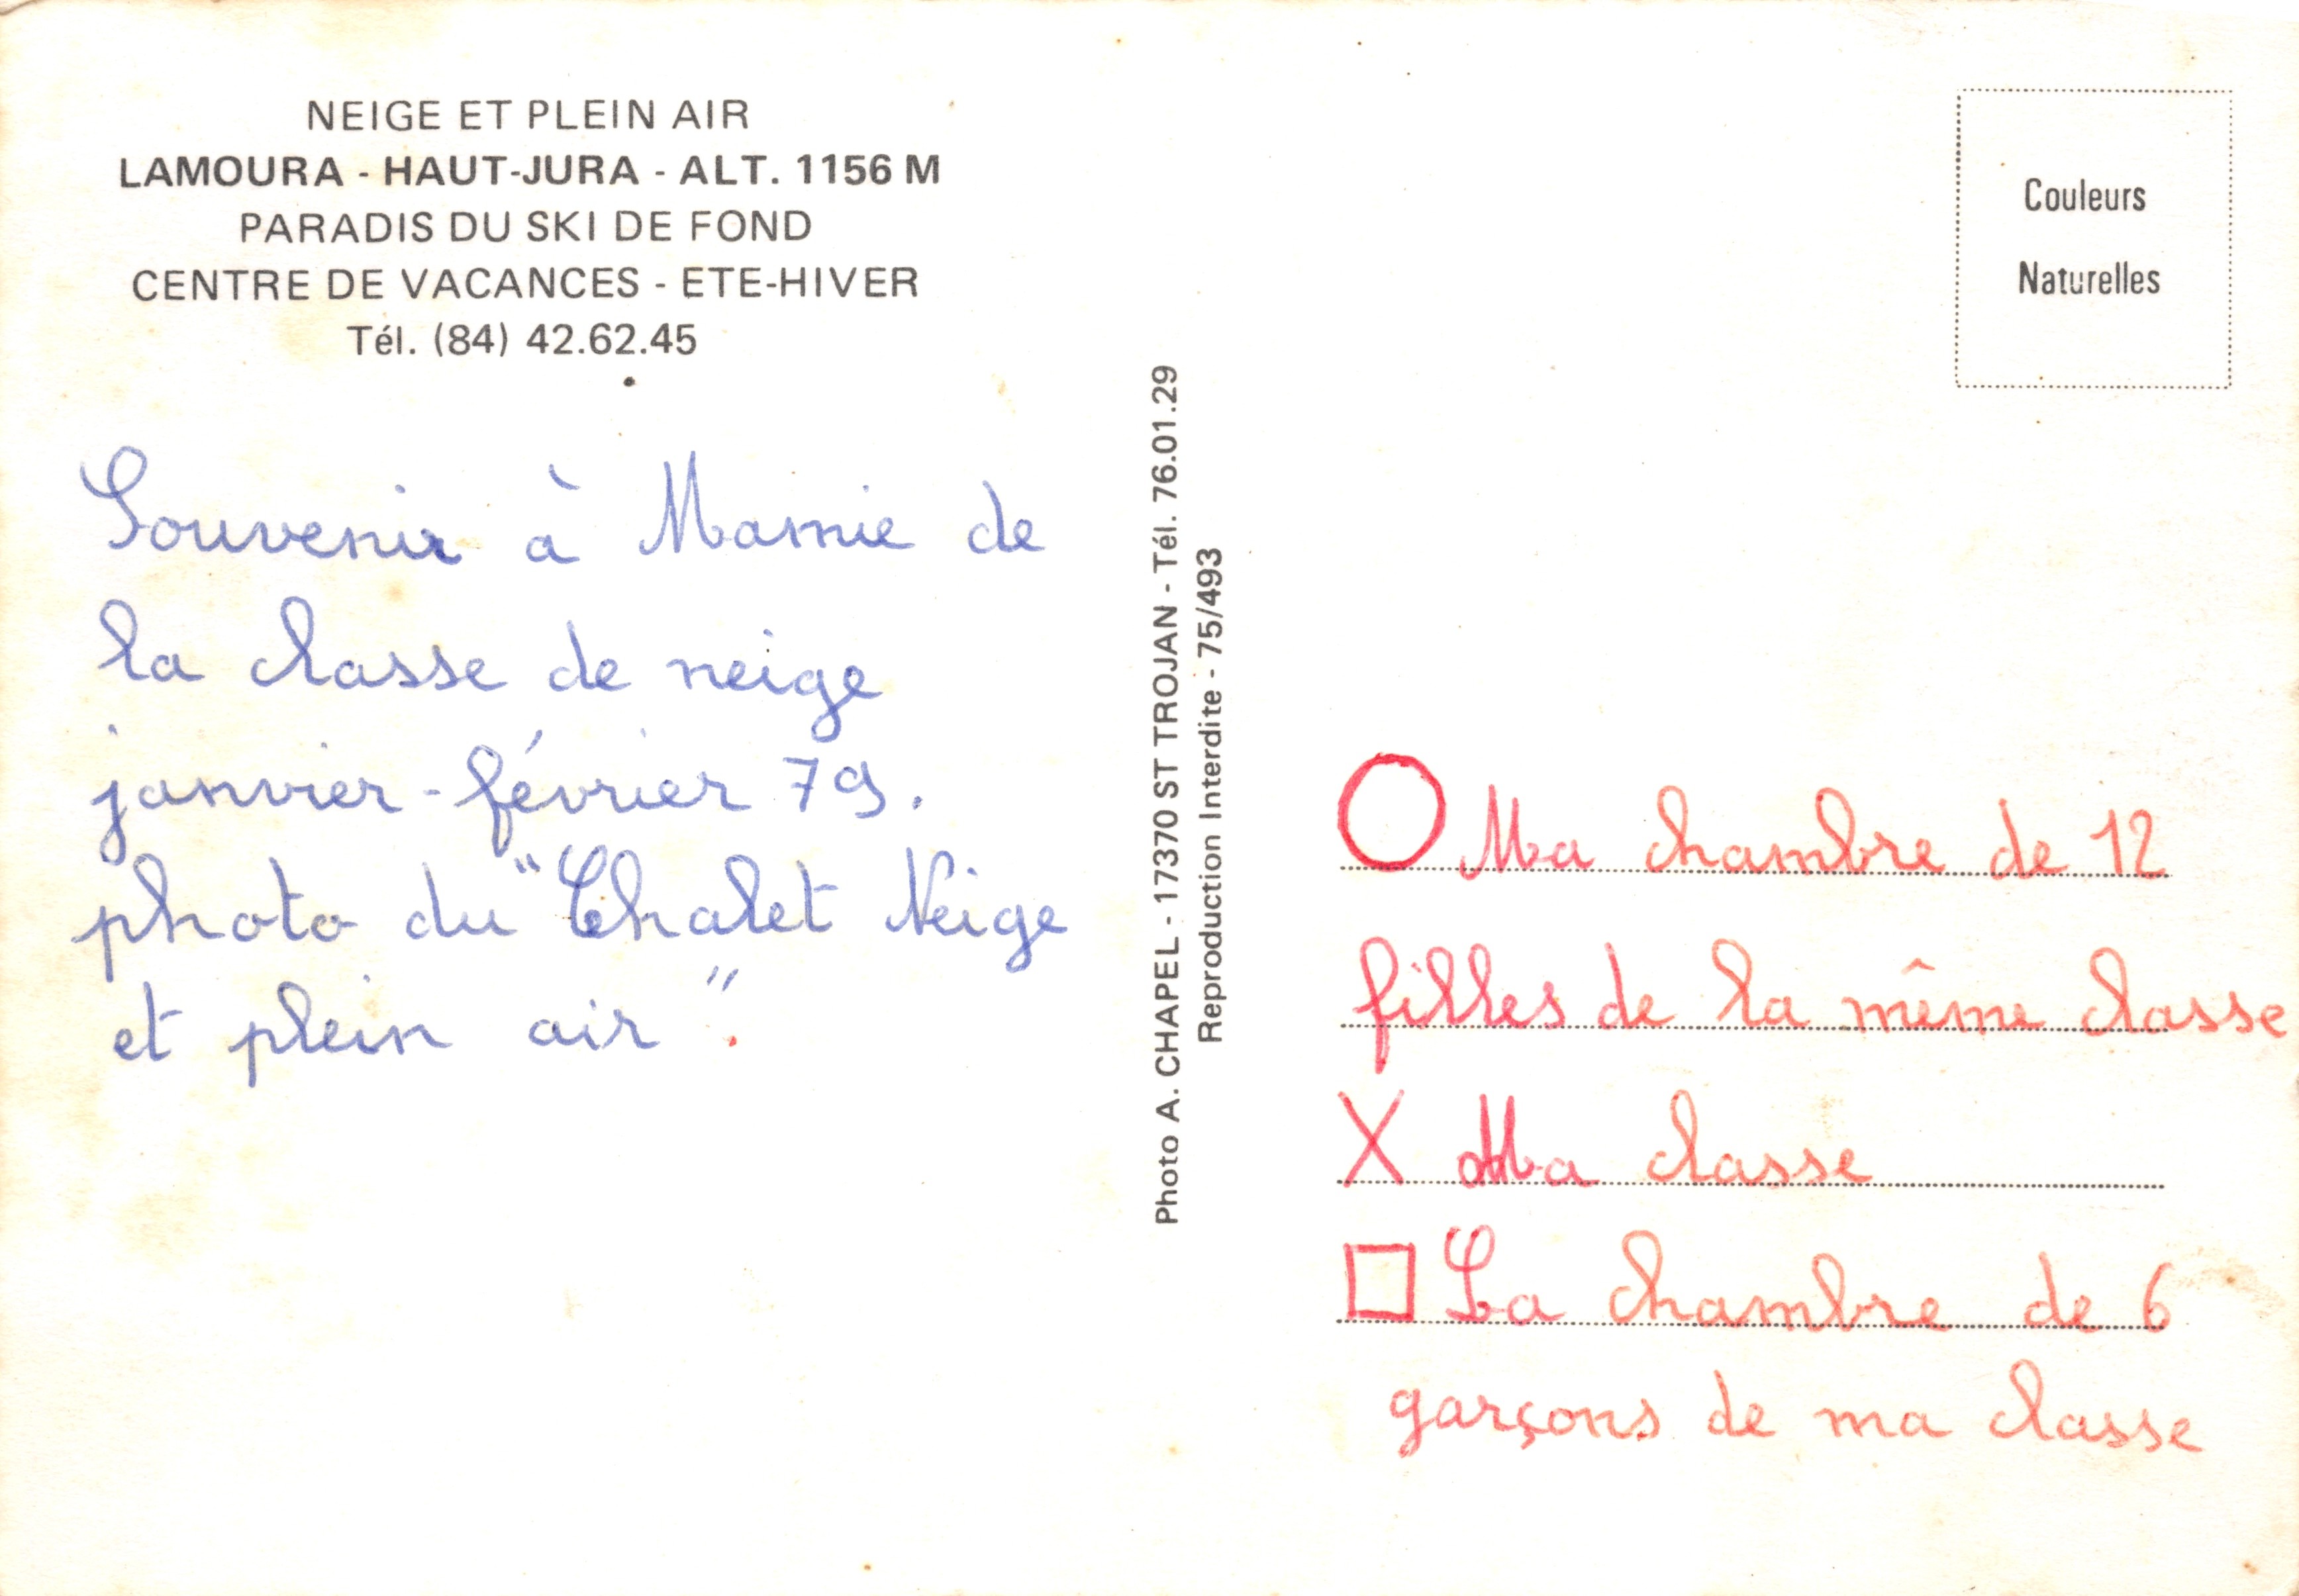 NEIGE ET PLEIN AIR
LAMOURA - HAUT-JURA - ALT. 1156 M
PARADIS DU SKI DE FOND
CENTRE DE VACANCES - ETE-HIVER
Tél. (84) 42.62.45
Souvenir à Mamie de
la classe de neige
janvier-février 79.
photo du "Chalet Neige
et plein air".
Photo A. CHAPEL - 17370 ST TROJAN - Tél. 76.01.29
Reproduction Interdite - 75/493
Couleurs
Naturelles
O Ma chambre de 12
filles de la même classe
X Ma classe
□ La chambre de 6
garçons de ma classe